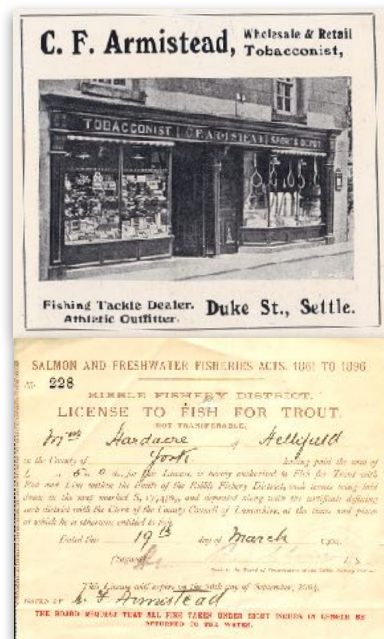 C. F. Armistead, Wholesale & Retail
Tobacconist,
TOBACCONIST C.F. ARMISTEAD SPORTS DEPOT
Fishing Tackle Dealer. Duke St., Settle.
Athletic Outfitter.
SALMON AND FRESHWATER FISHERIES ACTS, 1861 TO 1896
No. 228
RIBBLE FISHERY DISTRICT.
LICENSE TO FISH FOR TROUT.
NOT TRANSFERABLE.
Hardacre of Hellifield
in the County of York having paid the sum of
for this License, is hereby authorised to Fish for Trout with
Rod and Line within the limits of the Ribble Fishery District, such limits being laid
down in the map marked and deposited along with the certificate defining
such district with the Clerk of the County Council of Lancashire, at the times and places
at which he is otherwise entitled to fish.
Dated this 19th day of March
(Signed)
This License will expire on the 30th day of September,
ISSUED BY C. F. Armistead
THE BOARD REQUEST THAT ALL FISH TAKEN UNDER EIGHT INCHES IN LENGTH BE
RETURNED TO THE WATER.